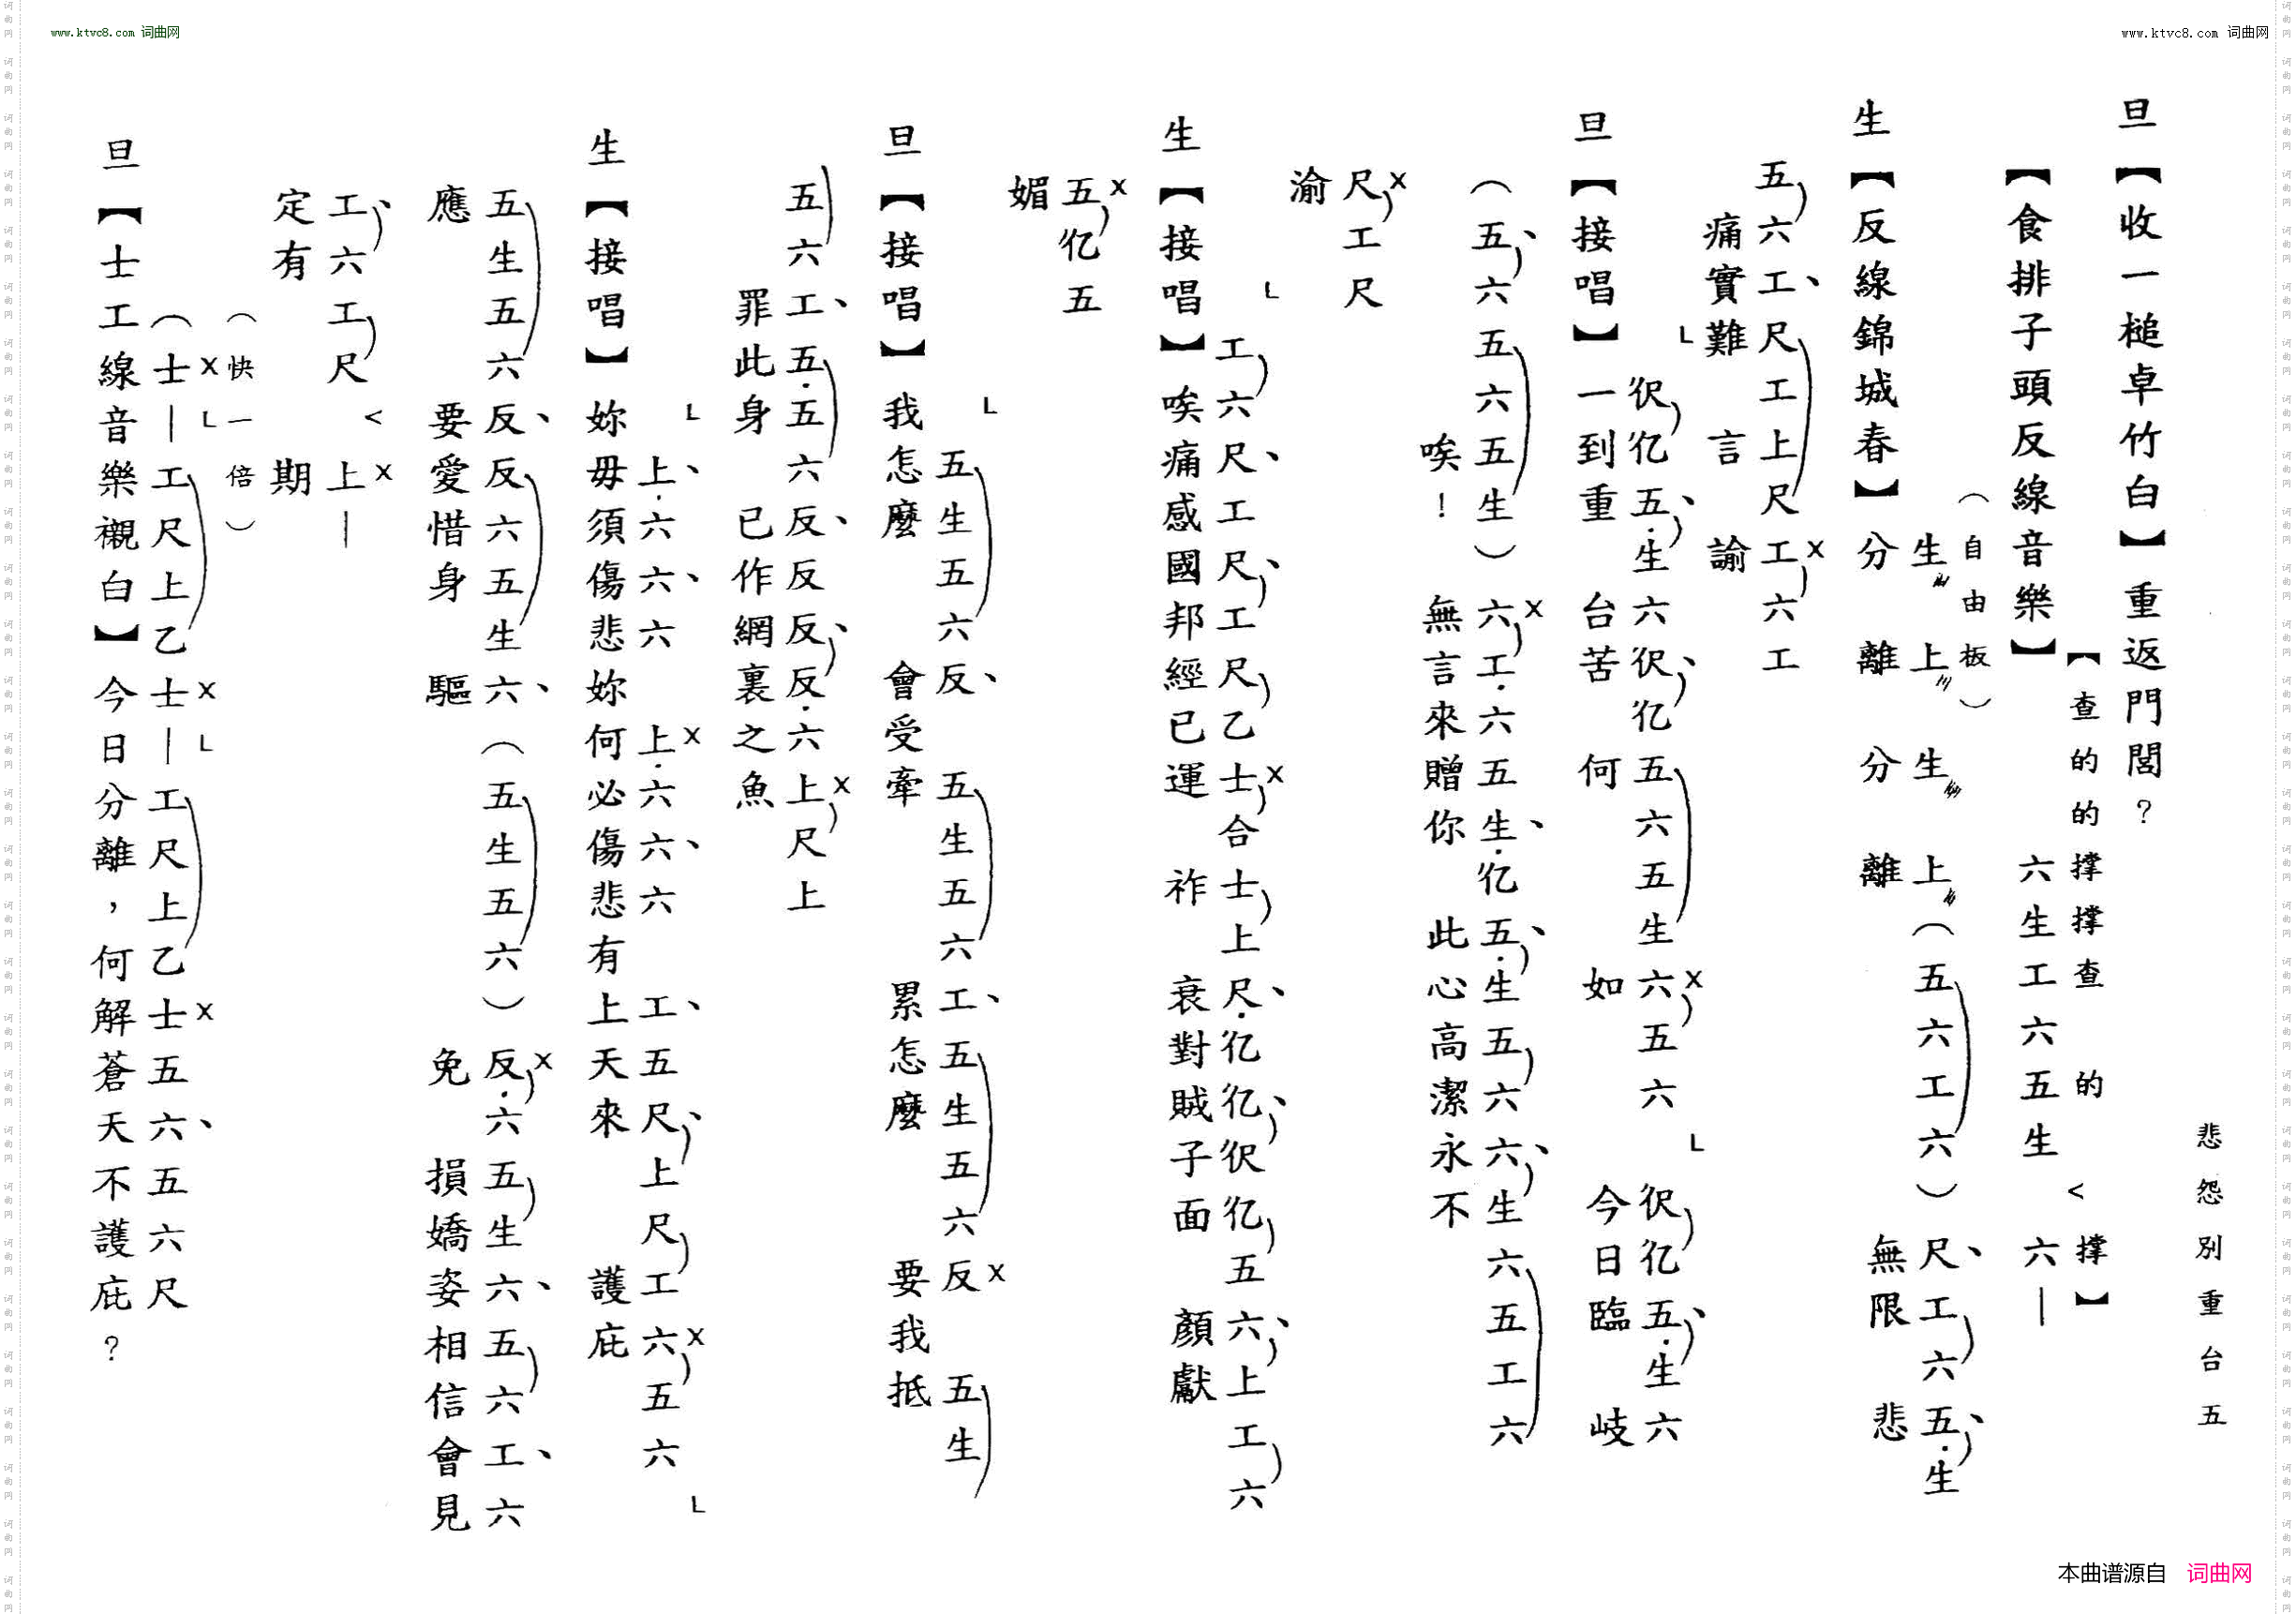 www.ktvc8.com 词曲网
www.ktvc8.com 词曲网
悲怨別重台五
旦【收一槌卓竹白】重返門閭?
【查的的撐撐查 的 < 撐】
【食排子頭反線音樂】六生工六五生 六—
(自由板)
生上生上(五六工六)尺、工六五、.生
生【反線錦城春】分離分離 無限悲
五六工、尺工上尺工x六工
痛實難言諭
L 伬亿五、.生六伬、亿五六五生六x五六 L 伬亿五、.生六
旦【接唱】一到重台苦何如 今日臨岐
(五、六五六五生)六x工.六五生、.亿五、.生五六六、生六五工六
唉!無言來贈你此心高潔永不
尺x工尺
渝
L 工六尺、工尺、工尺乙士x合士上尺、.亿亿、伬亿五六、上工六
生【接唱】唉痛感國邦經已運祚衰對賊子面顏獻
五x亿五
媚
L 五生五六反、五生五六工、五生五六反x五生
旦【接唱】我怎麼會受牽累怎麼要我抵
五六工、五.五六反、反反、反.六上x尺上
罪此身已作網裏之魚
L 上、.六六、六上x.六六、六工、五尺、上尺工六x五六 L
生【接唱】妳毋須傷悲妳何必傷悲有上天來護庇
五生五六反、反六五生六、(五生五六)反x.六五生六、五六工、六
應要愛惜身驅 免損嬌姿相信會見
工、六工尺 < 上x—
定有期
(快一倍)
(士x—L工尺上乙士x—L工尺上乙士x五六、五六尺
旦【士工線音樂襯白】今日分離,何解蒼天不護庇?
本曲谱源自 词曲网